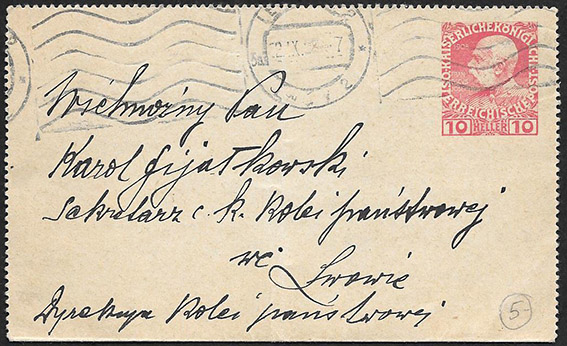 12.IX
KAISERLICHEKÖNIGLICHE
ÖSTERREICHISCHE POST
1908
10 HELLER 10
Wielmożny Pan
Karol
Sekretarz c. k. Kolei państwowej
we Lwowie
Dyrekcya Kolei państwowej
5-